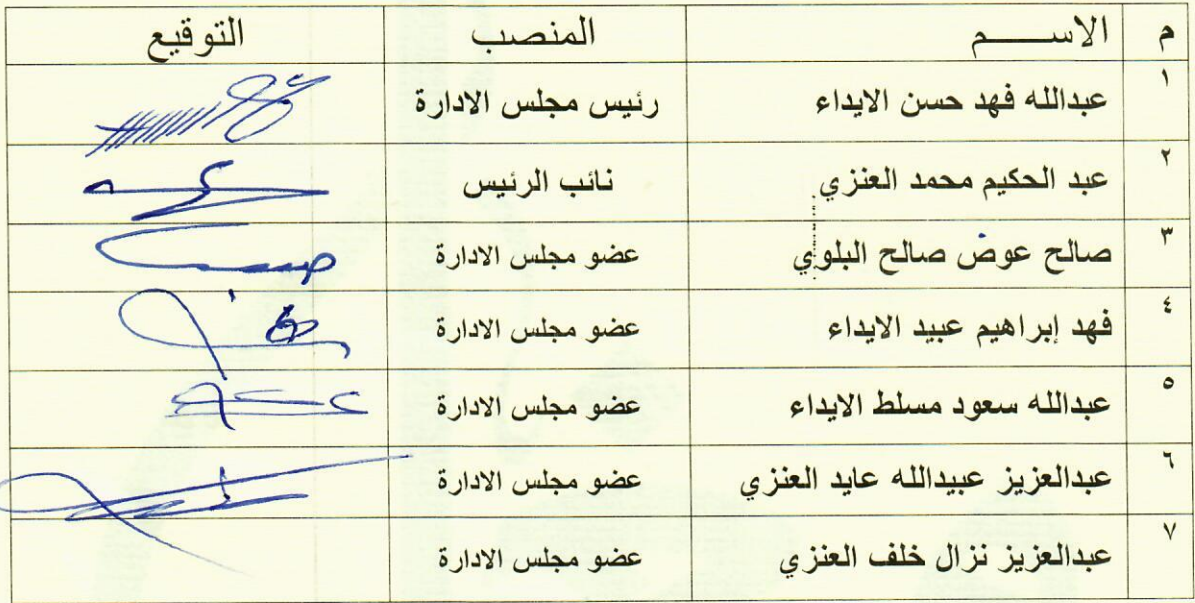 م الاســـــــم المنصب التوقيع
١ عبدالله فهد حسن الايداء رئيس مجلس الادارة
٢ عبد الحكيم محمد العنزي نائب الرئيس
٣ صالح عوض صالح البلوي عضو مجلس الادارة
٤ فهد إبراهيم عبيد الايداء عضو مجلس الادارة
٥ عبدالله سعود مسلط الايداء عضو مجلس الادارة
٦ عبدالعزيز عبيدالله عايد العنزي عضو مجلس الادارة
٧ عبدالعزيز نزال خلف العنزي عضو مجلس الادارة